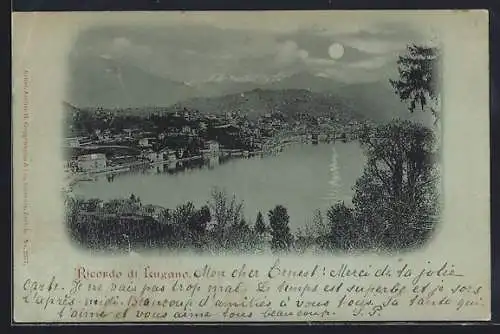 Ricordo di Lugano.
Mon cher Ernest! Merci de ta jolie
carte. Je ne vais pas trop mal. Le temps est superbe et je sors
l'après-midi. Beaucoup d'amitiés à vous tous. Ta tante qui
t'aime et vous aime tous beaucoup.